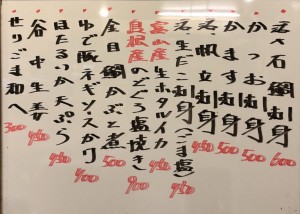 石鯛刺身 600
かつお刺身 500
かます刺身 500
帆立刺身 450
生だこ刺身(ごま塩) 450
富山産 生ホタルイカ
島根産 のどぐろ塩焼き 900
金目鯛かぶと煮 500
ゆで豚ネギソースかけ 400
ほたるいか天ぷら 450
谷中生姜 450
せりごま和へ 300